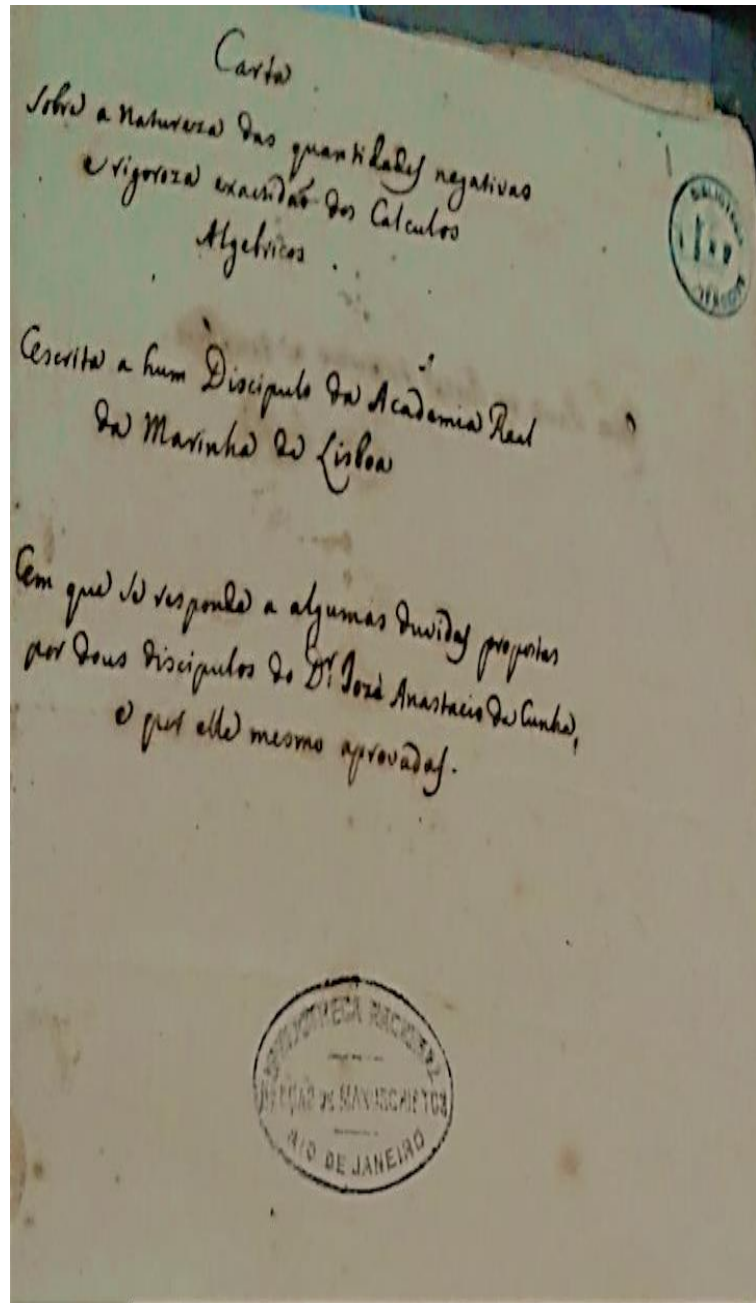 Carta
sobre a Natureza das quantidades negativas
e rigoroza exactidaõ dos Calculos
Algebricos.
Escrita a hum Discipulo da Academia Real
da Marinha de Lisboa
Em que se responde a algumas duvidas propostas
por dous discipulos do Dr. Jozé Anastacio da Cunha,
e por elle mesmo aprovadas.
BIBLIOTHECA NACIONAL
SECÇÃO DE MANUSCRIPTOS
RIO DE JANEIRO